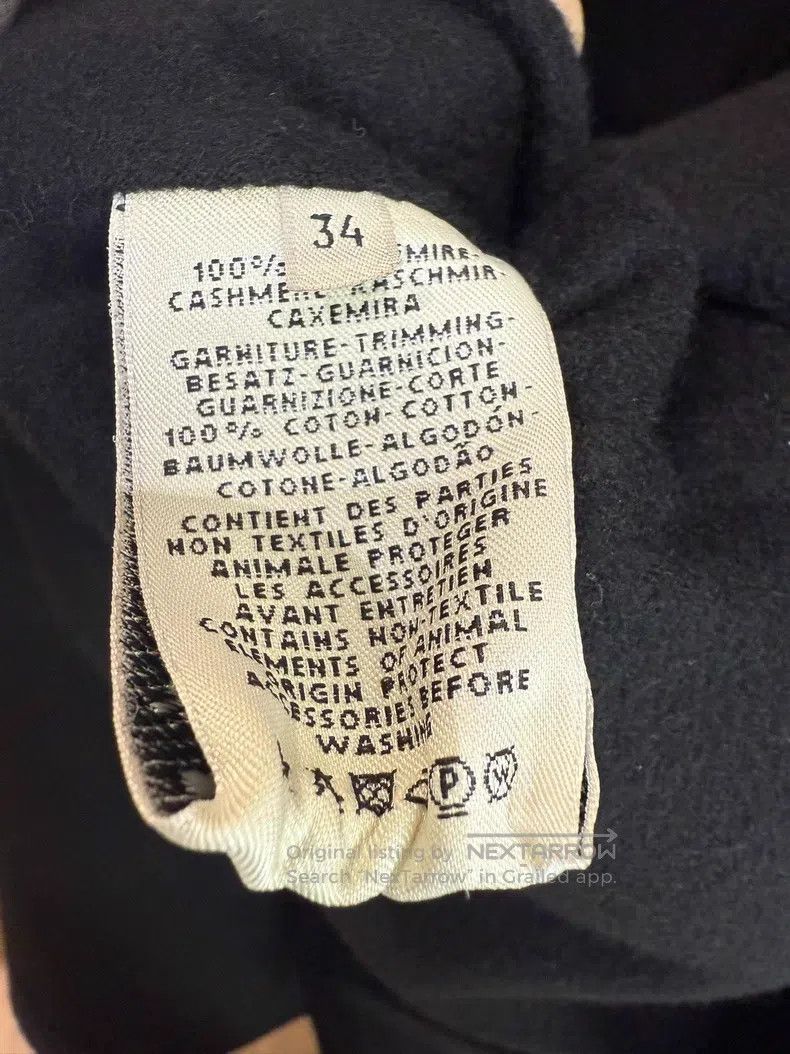 34
100% 
CASHMERE-KASCHMIR-
CAXEMIRA
GARNITURE-TRIMMING-
BESATZ-GUARNICION-
GUARNIZIONE-CORTE
100% COTON-COTTON-
BAUMWOLLE-ALGODÓN-
COTONE-ALGODÃO
CONTIENT DES PARTIES
NON TEXTILES D'ORIGINE
ANIMALE PROTEGER
LES ACCESSOIRES
AVANT ENTRETIEN
CONTAINS NON-TEXTILE
ELEMENTS OF ANIMAL
ORIGIN PROTECT
ACCESSORIES BEFORE
WASHING
P W
Original listing by NEXTARROW
Search "NexTarrow" in Grailed app.